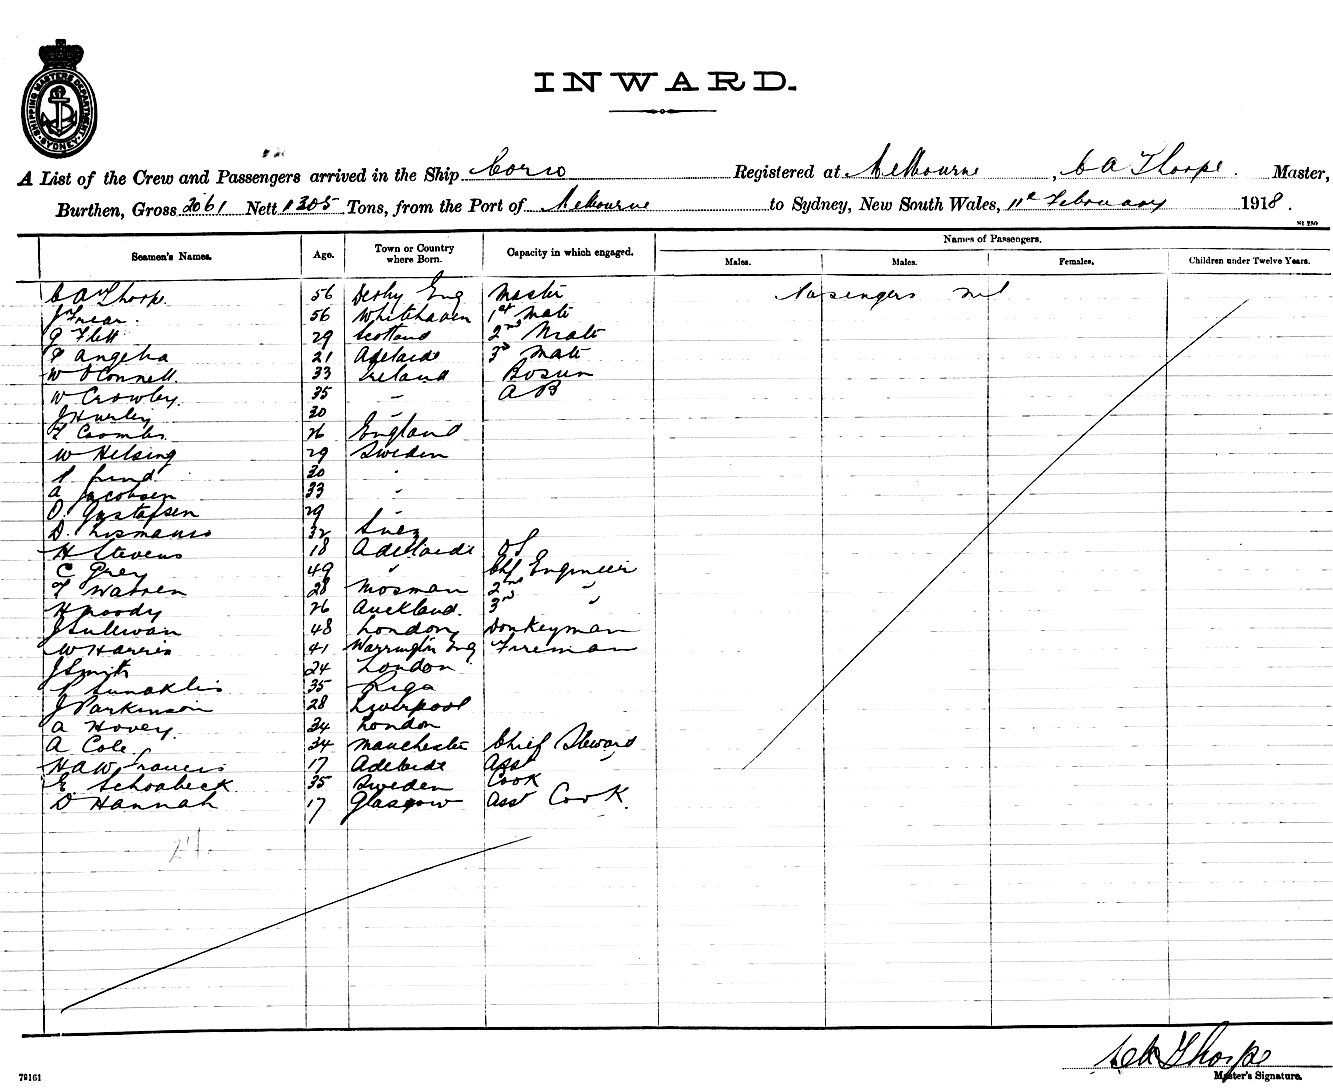 SHIPPING MASTERS DEPARTMENT. SYDNEY.
INWARD.
A List of the Crew and Passengers arrived in the Ship Corio Registered at Melbourne, C A Thorpe. Master,
Burthen, Gross 3061 Nett 1305 Tons, from the Port of Melbourne to Sydney, New South Wales, 11th February 1918.
Seamen's Names. Age. Town or Country where Born. Capacity in which engaged. Names of Passengers.
Males. Males. Females. Children under Twelve Years.
C A Thorpe. 56 Derby Eng Master Passengers nil
J Frear. 56 Whitehaven 1st Mate
G Flett 29 Scotland 2nd Mate
P Angelia 21 Adelaide 3rd Mate
W O'Connell. 33 Ireland Bosun
W Crowley. 35 " A B
J Hurley 30 "
F Coombs 26 England
W Helsing 29 Sweden
30 "
A Jacobsen 33 "
O. Gustafsen 29 "
D. 32 Suez
H Stevens 18 Adelaide OS
C Grey 49 " Chf Engineer
F Warren 28 Mosman 2nd "
H Moody 26 Auckland. 3rd "
J Sullivan 48 London Donkeyman
W Harris 41 Warrington Eng Fireman
J Smith 24 London
35 Riga
J Parkinson 28 Liverpool
A Hovey. 34 London
A Cole. 34 Manchester Chief Steward
H A W Travers 17 Adelaide Asst "
E. Schoabeck 35 Sweden Cook
D Hannah 17 Glasgow Asst Cook
27.
C A Thorpe
Master's Signature.
79161